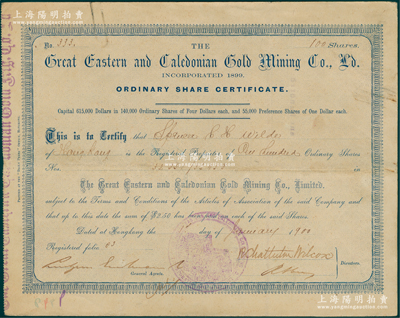 上海陽明拍賣
No. 333. 100 Shares.
THE
Great Eastern and Caledonian Gold Mining Co., Ld.
INCORPORATED 1899.
ORDINARY SHARE CERTIFICATE.
Capital 615,000 Dollars in 140,000 Ordinary Shares of Four Dollars each, and 55,000 Preference Shares of One Dollar each.
This is to Certify that
of Hongkong is the Registered Proprietor of One Hundred Ordinary Shares
Nos. in
The Great Eastern and Caledonian Gold Mining Co., Limited.
subject to the Terms and Conditions of the Articles of Association of the said Company and
that up to this date the sum of $2.50 has been paid upon each of the said Shares.
Dated at Hongkong the day of January 1900
Registered folio 93
Chatterton Wilcox
Directors.
General Agents.
上海陽明拍賣